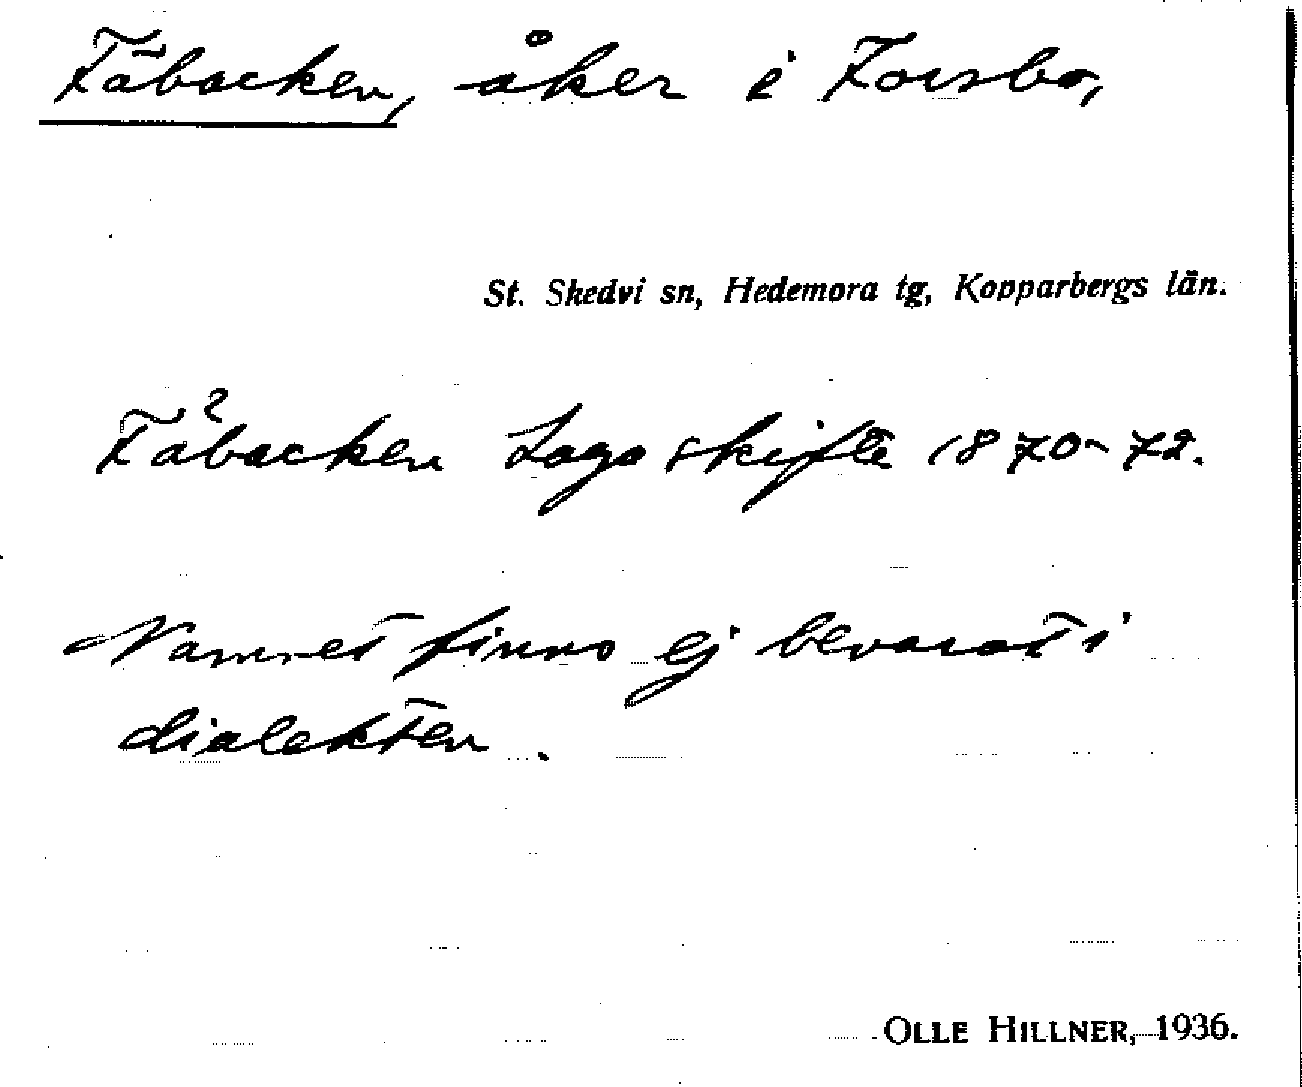 Fäbacken, åker i Forsbo,
St. Skedvi sn, Hedemora tg, Kopparbergs län.
Fåbacken Laga skifte 1870-72.
Namnet finns ej bevarat i
dialekten.
OLLE HILLNER, 1936.